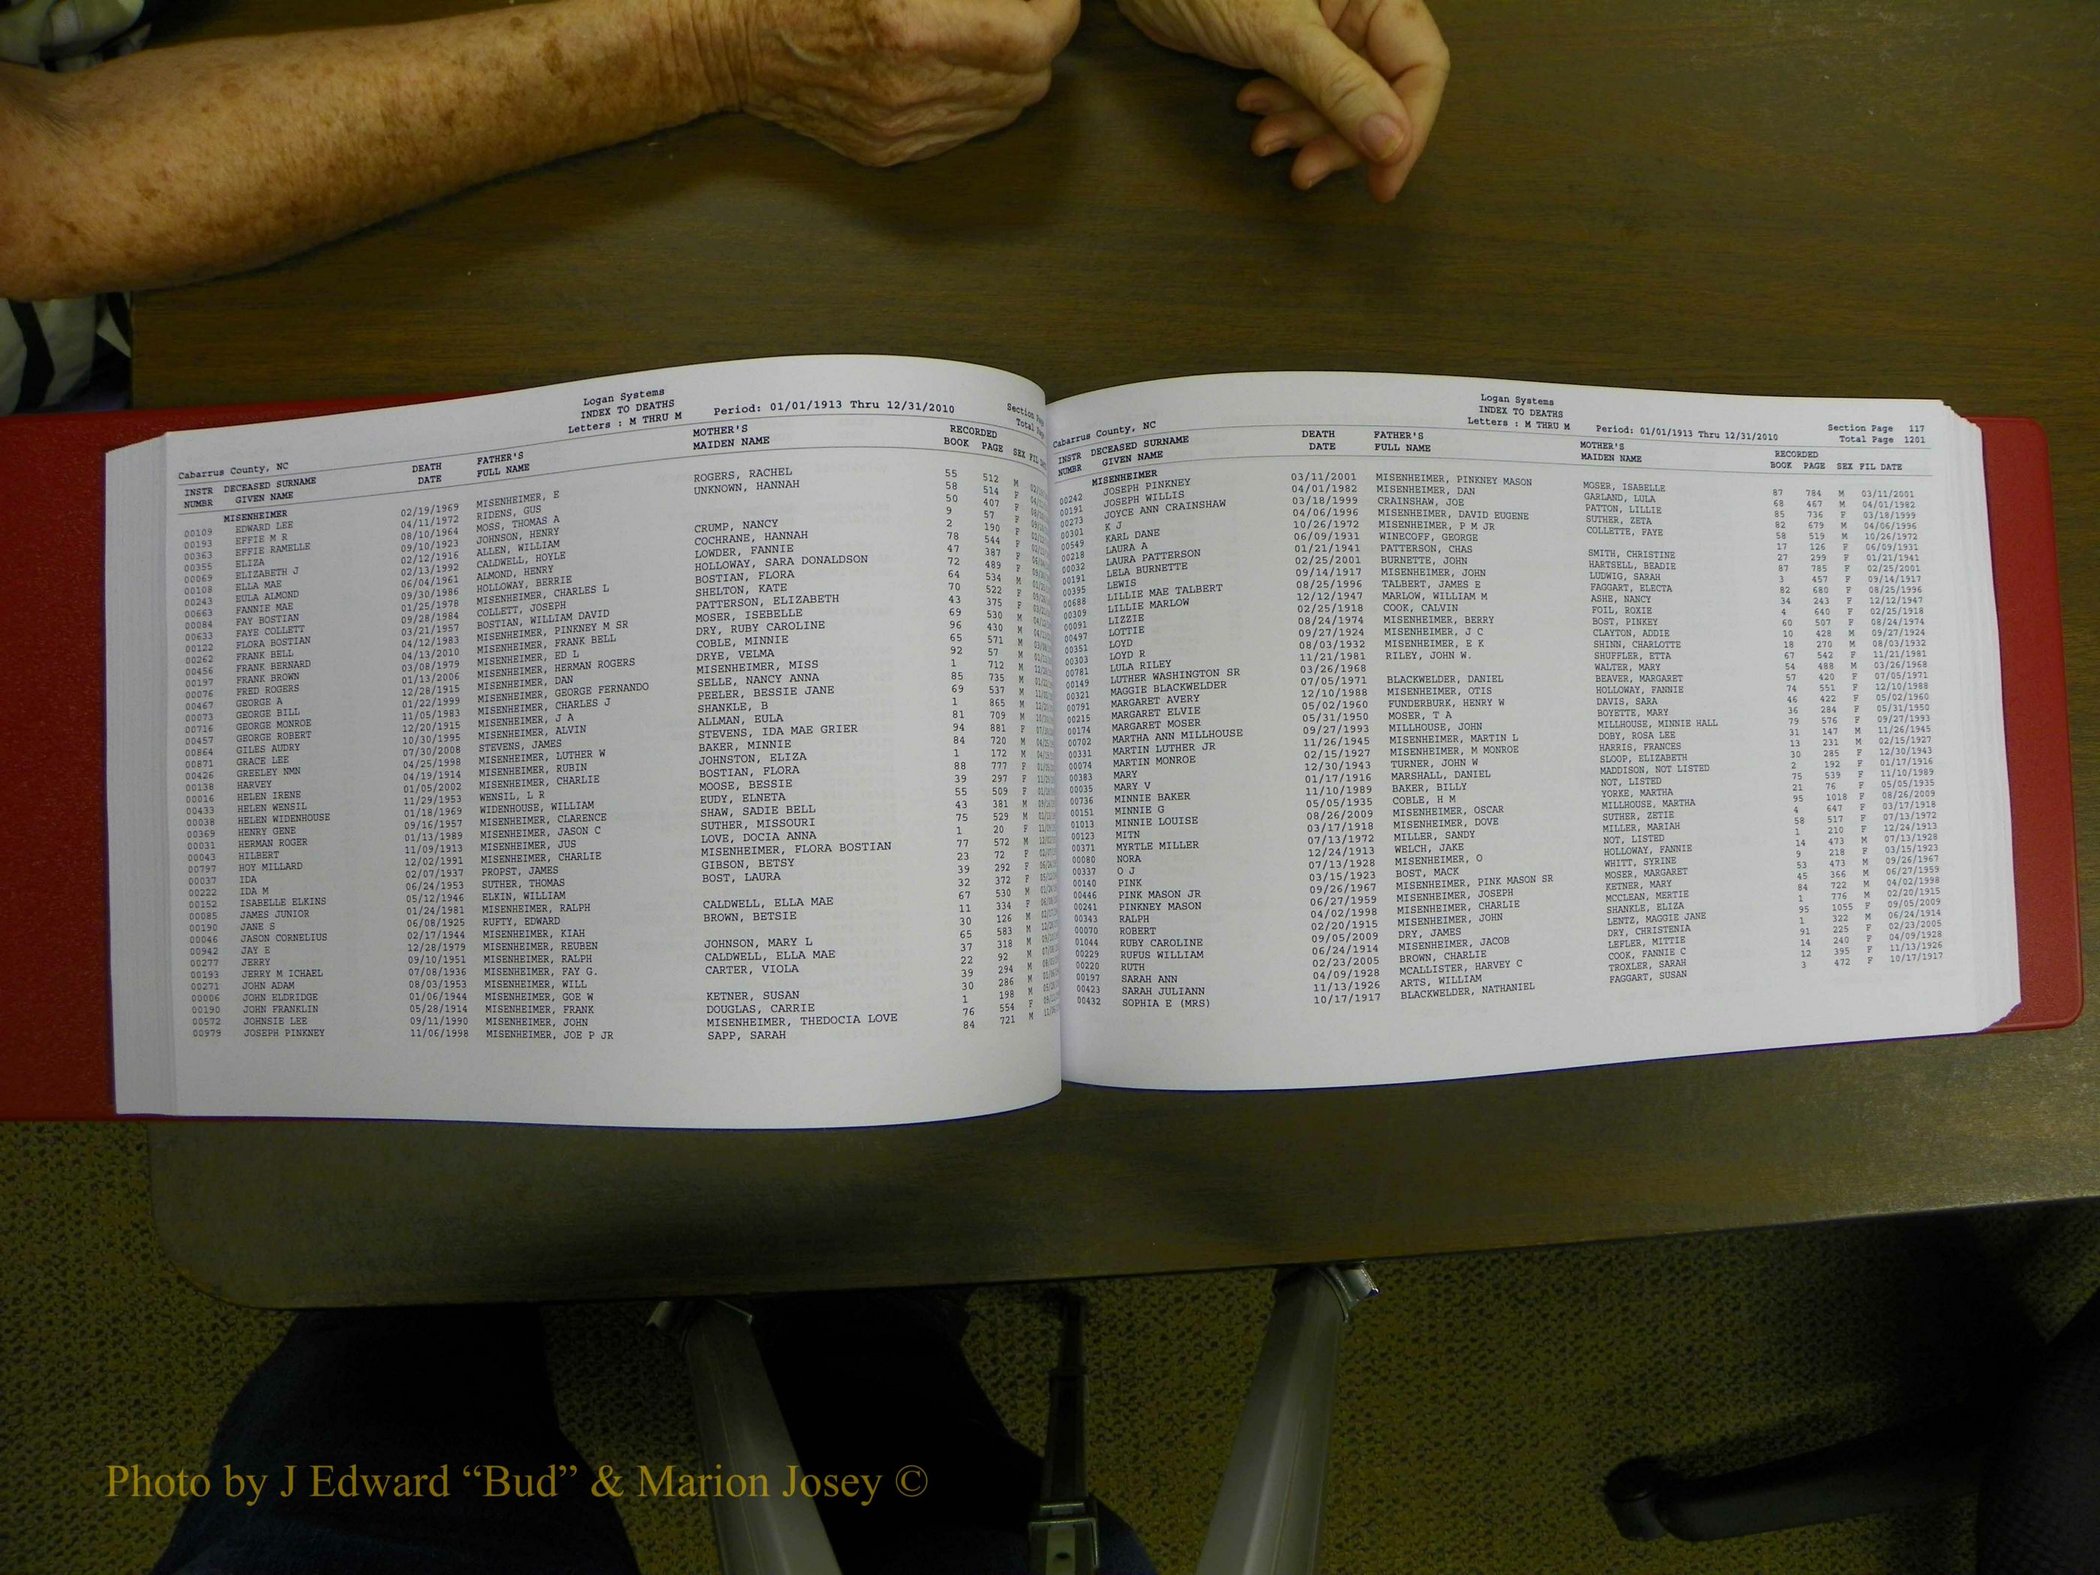 Logan Systems
INDEX TO DEATHS
Letters : M THRU M Period: 01/01/1913 Thru 12/31/2010
Section Page
Total Page
Cabarrus County, NC
INSTR DECEASED SURNAME DEATH FATHER'S MOTHER'S RECORDED
NUMBR GIVEN NAME DATE FULL NAME MAIDEN NAME BOOK PAGE SEX FIL DATE
MISENHEIMER
00109 EDWARD LEE 02/19/1969 MISENHEIMER, E ROGERS, RACHEL 55 512 M
00193 EFFIE M R 04/11/1972 RIDENS, GUS UNKNOWN, HANNAH 58 514 F
00363 EFFIE RAMELLE 08/10/1964 MOSS, THOMAS A 50 407
00355 ELIZA 09/10/1923 JOHNSON, HENRY 9 57
00069 ELIZABETH J 02/12/1916 ALLEN, WILLIAM CRUMP, NANCY 2 190
00108 ELLA MAE 02/13/1992 CALDWELL, HOYLE COCHRANE, HANNAH 78 544
00243 EULA ALMOND 06/04/1961 ALMOND, HENRY LOWDER, FANNIE 47 387
00663 FANNIE MAE 09/30/1986 HOLLOWAY, BERRIE HOLLOWAY, SARA DONALDSON 72 489
00084 FAY BOSTIAN 01/25/1978 MISENHEIMER, CHARLES L BOSTIAN, FLORA 64 534
00633 FAYE COLLETT 09/28/1984 COLLETT, JOSEPH SHELTON, KATE 70 522
00122 FLORA BOSTIAN 03/21/1957 BOSTIAN, WILLIAM DAVID PATTERSON, ELIZABETH 43 375
00262 FRANK BELL 04/12/1983 MISENHEIMER, PINKNEY M SR MOSER, ISEBELLE 69 530
00456 FRANK BERNARD 04/13/2010 MISENHEIMER, FRANK BELL DRY, RUBY CAROLINE 96 430
00197 FRANK BROWN 03/08/1979 MISENHEIMER, ED L COBLE, MINNIE 65 571
00076 FRED ROGERS 01/13/2006 MISENHEIMER, HERMAN ROGERS DRYE, VELMA 92 57
00467 GEORGE A 12/28/1915 MISENHEIMER, DAN MISENHEIMER, MISS 1 712
00073 GEORGE BILL 01/22/1999 MISENHEIMER, GEORGE FERNANDO SELLE, NANCY ANNA 85 735
00716 GEORGE MONROE 11/05/1983 MISENHEIMER, CHARLES J PEELER, BESSIE JANE 69 537
00457 GEORGE ROBERT 12/20/1915 MISENHEIMER, J A SHANKLE, B 1 865
00864 GILES AUDRY 10/30/1995 MISENHEIMER, ALVIN ALLMAN, EULA 81 709
00871 GRACE LEE 07/30/2008 STEVENS, JAMES STEVENS, IDA MAE GRIER 94 881
00426 GREELEY NMN 04/25/1998 MISENHEIMER, LUTHER W BAKER, MINNIE 84 720
00138 HARVEY 04/19/1914 MISENHEIMER, RUBIN JOHNSTON, ELIZA 1 172
00016 HELEN IRENE 01/05/2002 MISENHEIMER, CHARLIE BOSTIAN, FLORA 88 777
00433 HELEN WENSIL 11/29/1953 WENSIL, L R MOOSE, BESSIE 39 297
00038 HELEN WIDENHOUSE 01/18/1969 WIDENHOUSE, WILLIAM EUDY, ELNETA 55 509
00369 HENRY GENE 09/16/1957 MISENHEIMER, CLARENCE SHAW, SADIE BELL 43 381
00031 HERMAN ROGER 01/13/1989 MISENHEIMER, JASON C SUTHER, MISSOURI 75 529
00043 HILBERT 11/09/1913 MISENHEIMER, JUS LOVE, DOCIA ANNA 1 20
00797 HOY MILLARD 12/02/1991 MISENHEIMER, CHARLIE MISENHEIMER, FLORA BOSTIAN 77 572
00037 IDA 02/07/1937 PROPST, JAMES GIBSON, BETSY 23 72
00222 IDA M 06/24/1953 SUTHER, THOMAS BOST, LAURA 39 292
00152 ISABELLE ELKINS 05/12/1946 ELKIN, WILLIAM 32 372
00085 JAMES JUNIOR 01/24/1981 MISENHEIMER, RALPH CALDWELL, ELLA MAE 67 530
00190 JANE S 06/08/1925 RUFTY, EDWARD BROWN, BETSIE 11 334
00046 JASON CORNELIUS 02/17/1944 MISENHEIMER, KIAH 30 126
00942 JAY E 12/28/1979 MISENHEIMER, REUBEN JOHNSON, MARY L 65 583
00277 JERRY 09/10/1951 MISENHEIMER, RALPH CALDWELL, ELLA MAE 37 318
00193 JERRY M ICHAEL 07/08/1936 MISENHEIMER, FAY G. CARTER, VIOLA 22 92
00271 JOHN ADAM 08/03/1953 MISENHEIMER, WILL 39 294
00006 JOHN ELDRIDGE 01/06/1944 MISENHEIMER, GOE W KETNER, SUSAN 30 286
00190 JOHN FRANKLIN 05/28/1914 MISENHEIMER, FRANK DOUGLAS, CARRIE 1 198
00572 JOHNSIE LEE 09/11/1990 MISENHEIMER, JOHN MISENHEIMER, THEDOCIA LOVE 76 554 F
00979 JOSEPH PINKNEY 11/06/1998 MISENHEIMER, JOE P JR SAPP, SARAH 84 721 M
Logan Systems
INDEX TO DEATHS
Letters : M THRU M Period: 01/01/1913 Thru 12/31/2010
Section Page 117
Total Page 1201
Cabarrus County, NC
INSTR DECEASED SURNAME DEATH FATHER'S MOTHER'S RECORDED
NUMBR GIVEN NAME DATE FULL NAME MAIDEN NAME BOOK PAGE SEX FIL DATE
MISENHEIMER
00242 JOSEPH PINKNEY 03/11/2001 MISENHEIMER, PINKNEY MASON MOSER, ISABELLE 87 784 M 03/11/2001
00191 JOSEPH WILLIS 04/01/1982 MISENHEIMER, DAN GARLAND, LULA 68 467 M 04/01/1982
00273 JOYCE ANN CRAINSHAW 03/18/1999 CRAINSHAW, JOE PATTON, LILLIE 85 736 F 03/18/1999
00301 K J 04/06/1996 MISENHEIMER, DAVID EUGENE SUTHER, ZETA 82 679 M 04/06/1996
00549 KARL DANE 10/26/1972 MISENHEIMER, P M JR COLLETTE, FAYE 58 519 M 10/26/1972
00218 LAURA A 06/09/1931 WINECOFF, GEORGE 17 126 F 06/09/1931
00032 LAURA PATTERSON 01/21/1941 PATTERSON, CHAS SMITH, CHRISTINE 27 299 F 01/21/1941
00191 LELA BURNETTE 02/25/2001 BURNETTE, JOHN HARTSELL, BEADIE 87 785 F 02/25/2001
00395 LEWIS 09/14/1917 MISENHEIMER, JOHN LUDWIG, SARAH 3 457 F 09/14/1917
00688 LILLIE MAE TALBERT 08/25/1996 TALBERT, JAMES E FAGGART, ELECTA 82 680 F 08/25/1996
00309 LILLIE MARLOW 12/12/1947 MARLOW, WILLIAM M ASHE, NANCY 34 243 F 12/12/1947
00091 LIZZIE 02/25/1918 COOK, CALVIN FOIL, ROXIE 4 640 F 02/25/1918
00497 LOTTIE 08/24/1974 MISENHEIMER, BERRY BOST, PINKEY 60 507 F 08/24/1974
00351 LOYD 09/27/1924 MISENHEIMER, J C CLAYTON, ADDIE 10 428 M 09/27/1924
00303 LOYD R 08/03/1932 MISENHEIMER, E K SHINN, CHARLOTTE 18 270 M 08/03/1932
00781 LULA RILEY 11/21/1981 RILEY, JOHN W. SHUFFLER, ETTA 67 542 F 11/21/1981
00149 LUTHER WASHINGTON SR 03/26/1968 WALTER, MARY 54 488 M 03/26/1968
00321 MAGGIE BLACKWELDER 07/05/1971 BLACKWELDER, DANIEL BEAVER, MARGARET 57 420 F 07/05/1971
00791 MARGARET AVERY 12/10/1988 MISENHEIMER, OTIS HOLLOWAY, FANNIE 74 551 F 12/10/1988
00215 MARGARET ELVIE 05/02/1960 FUNDERBURK, HENRY W DAVIS, SARA 46 422 F 05/02/1960
00174 MARGARET MOSER 05/31/1950 MOSER, T A BOYETTE, MARY 36 284 F 05/31/1950
00702 MARTHA ANN MILLHOUSE 09/27/1993 MILLHOUSE, JOHN MILLHOUSE, MINNIE HALL 79 576 F 09/27/1993
00331 MARTIN LUTHER JR 11/26/1945 MISENHEIMER, MARTIN L DOBY, ROSA LEE 31 147 M 11/26/1945
00074 MARTIN MONROE 02/15/1927 MISENHEIMER, M MONROE HARRIS, FRANCES 13 231 M 02/15/1927
00383 MARY 12/30/1943 TURNER, JOHN W SLOOP, ELIZABETH 30 285 F 12/30/1943
00035 MARY V 01/17/1916 MARSHALL, DANIEL MADDISON, NOT LISTED 2 192 F 01/17/1916
00736 MINNIE BAKER 11/10/1989 BAKER, BILLY NOT, LISTED 75 539 F 11/10/1989
00151 MINNIE G 05/05/1935 COBLE, H M YORKE, MARTHA 21 76 F 05/05/1935
01013 MINNIE LOUISE 08/26/2009 MISENHEIMER, OSCAR MILLHOUSE, MARTHA 95 1018 F 08/26/2009
00123 MITN 03/17/1918 MISENHEIMER, DOVE SUTHER, ZETIE 4 647 F 03/17/1918
00371 MYRTLE MILLER 07/13/1972 MILLER, SANDY MILLER, MARIAH 58 517 F 07/13/1972
00080 NORA 12/24/1913 WELCH, JAKE NOT, LISTED 1 210 F 12/24/1913
00337 O J 07/13/1928 MISENHEIMER, O HOLLOWAY, FANNIE 14 473 M 07/13/1928
00140 PINK 03/15/1923 BOST, MACK WHITT, SYRINE 9 218 F 03/15/1923
00446 PINK MASON JR 09/26/1967 MISENHEIMER, PINK MASON SR MOSER, MARGARET 53 473 M 09/26/1967
00241 PINKNEY MASON 06/27/1959 MISENHEIMER, JOSEPH KETNER, MARY 45 366 M 06/27/1959
00343 RALPH 04/02/1998 MISENHEIMER, CHARLIE MCCLEAN, MERTIE 84 722 M 04/02/1998
00070 ROBERT 02/20/1915 MISENHEIMER, JOHN SHANKLE, ELIZA 1 776 M 02/20/1915
01044 RUBY CAROLINE 09/05/2009 DRY, JAMES LENTZ, MAGGIE JANE 95 1055 F 09/05/2009
00229 RUFUS WILLIAM 06/24/1914 MISENHEIMER, JACOB DRY, CHRISTENIA 1 322 M 06/24/1914
00220 RUTH 02/23/2005 BROWN, CHARLIE LEFLER, MITTIE 91 225 F 02/23/2005
00197 SARAH ANN 04/09/1928 MCALLISTER, HARVEY C COOK, FANNIE C 14 240 F 04/09/1928
00423 SARAH JULIANN 11/13/1926 ARTS, WILLIAM TROXLER, SARAH 12 395 F 11/13/1926
00432 SOPHIA E (MRS) 10/17/1917 BLACKWELDER, NATHANIEL FAGGART, SUSAN 3 472 F 10/17/1917
Photo by J Edward “Bud” & Marion Josey ©